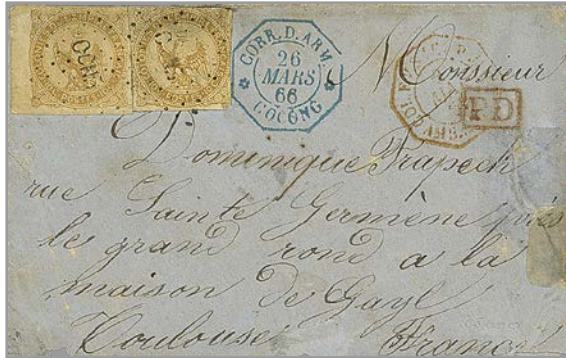 CORR. D. ARM.
26
MARS
66
COCONG
PD
Monssieur
Dominique Trapech
rue Sainte Germène près
le grand rond a la
maison de Gayl
Toulouse France